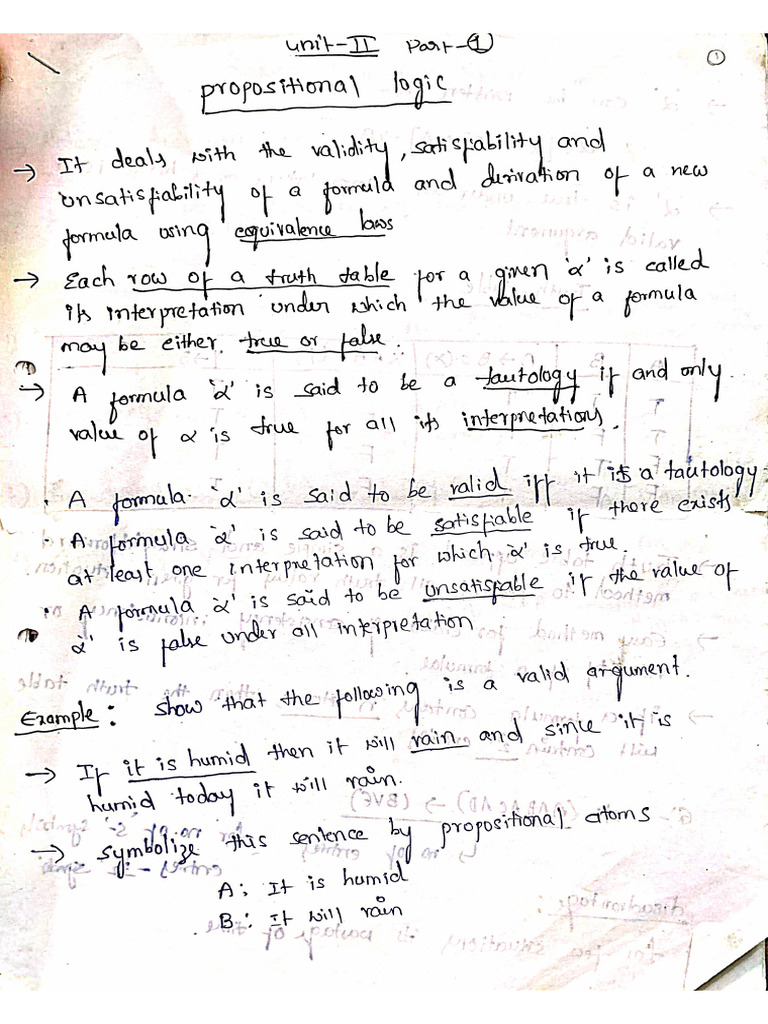 Unit-II Part-1
1
propositional logic
→ It deals with the validity, satisfiability and
unsatisfiability of a formula and derivation of a new
formula using equivalence laws
→ Each row of a truth table for a given 'α' is called
its interpretation under which the value of a formula
may be either true or false.
→ A formula 'α' is said to be a tautology if and only
value of α is true for all its interpretations.
· A formula 'α' is said to be valid iff it is a tautology
· A formula 'α' is said to be satisfiable if there exists
at least one interpretation for which 'α' is true.
· A formula 'α' is said to be unsatisfiable if the value of
'α' is false under all interpretation
Example: show that the following is a valid argument.
→ If it is humid then it will rain and since it is
humid today it will rain.
→ symbolize this sentence by propositional atoms
A: It is humid
B: It will rain